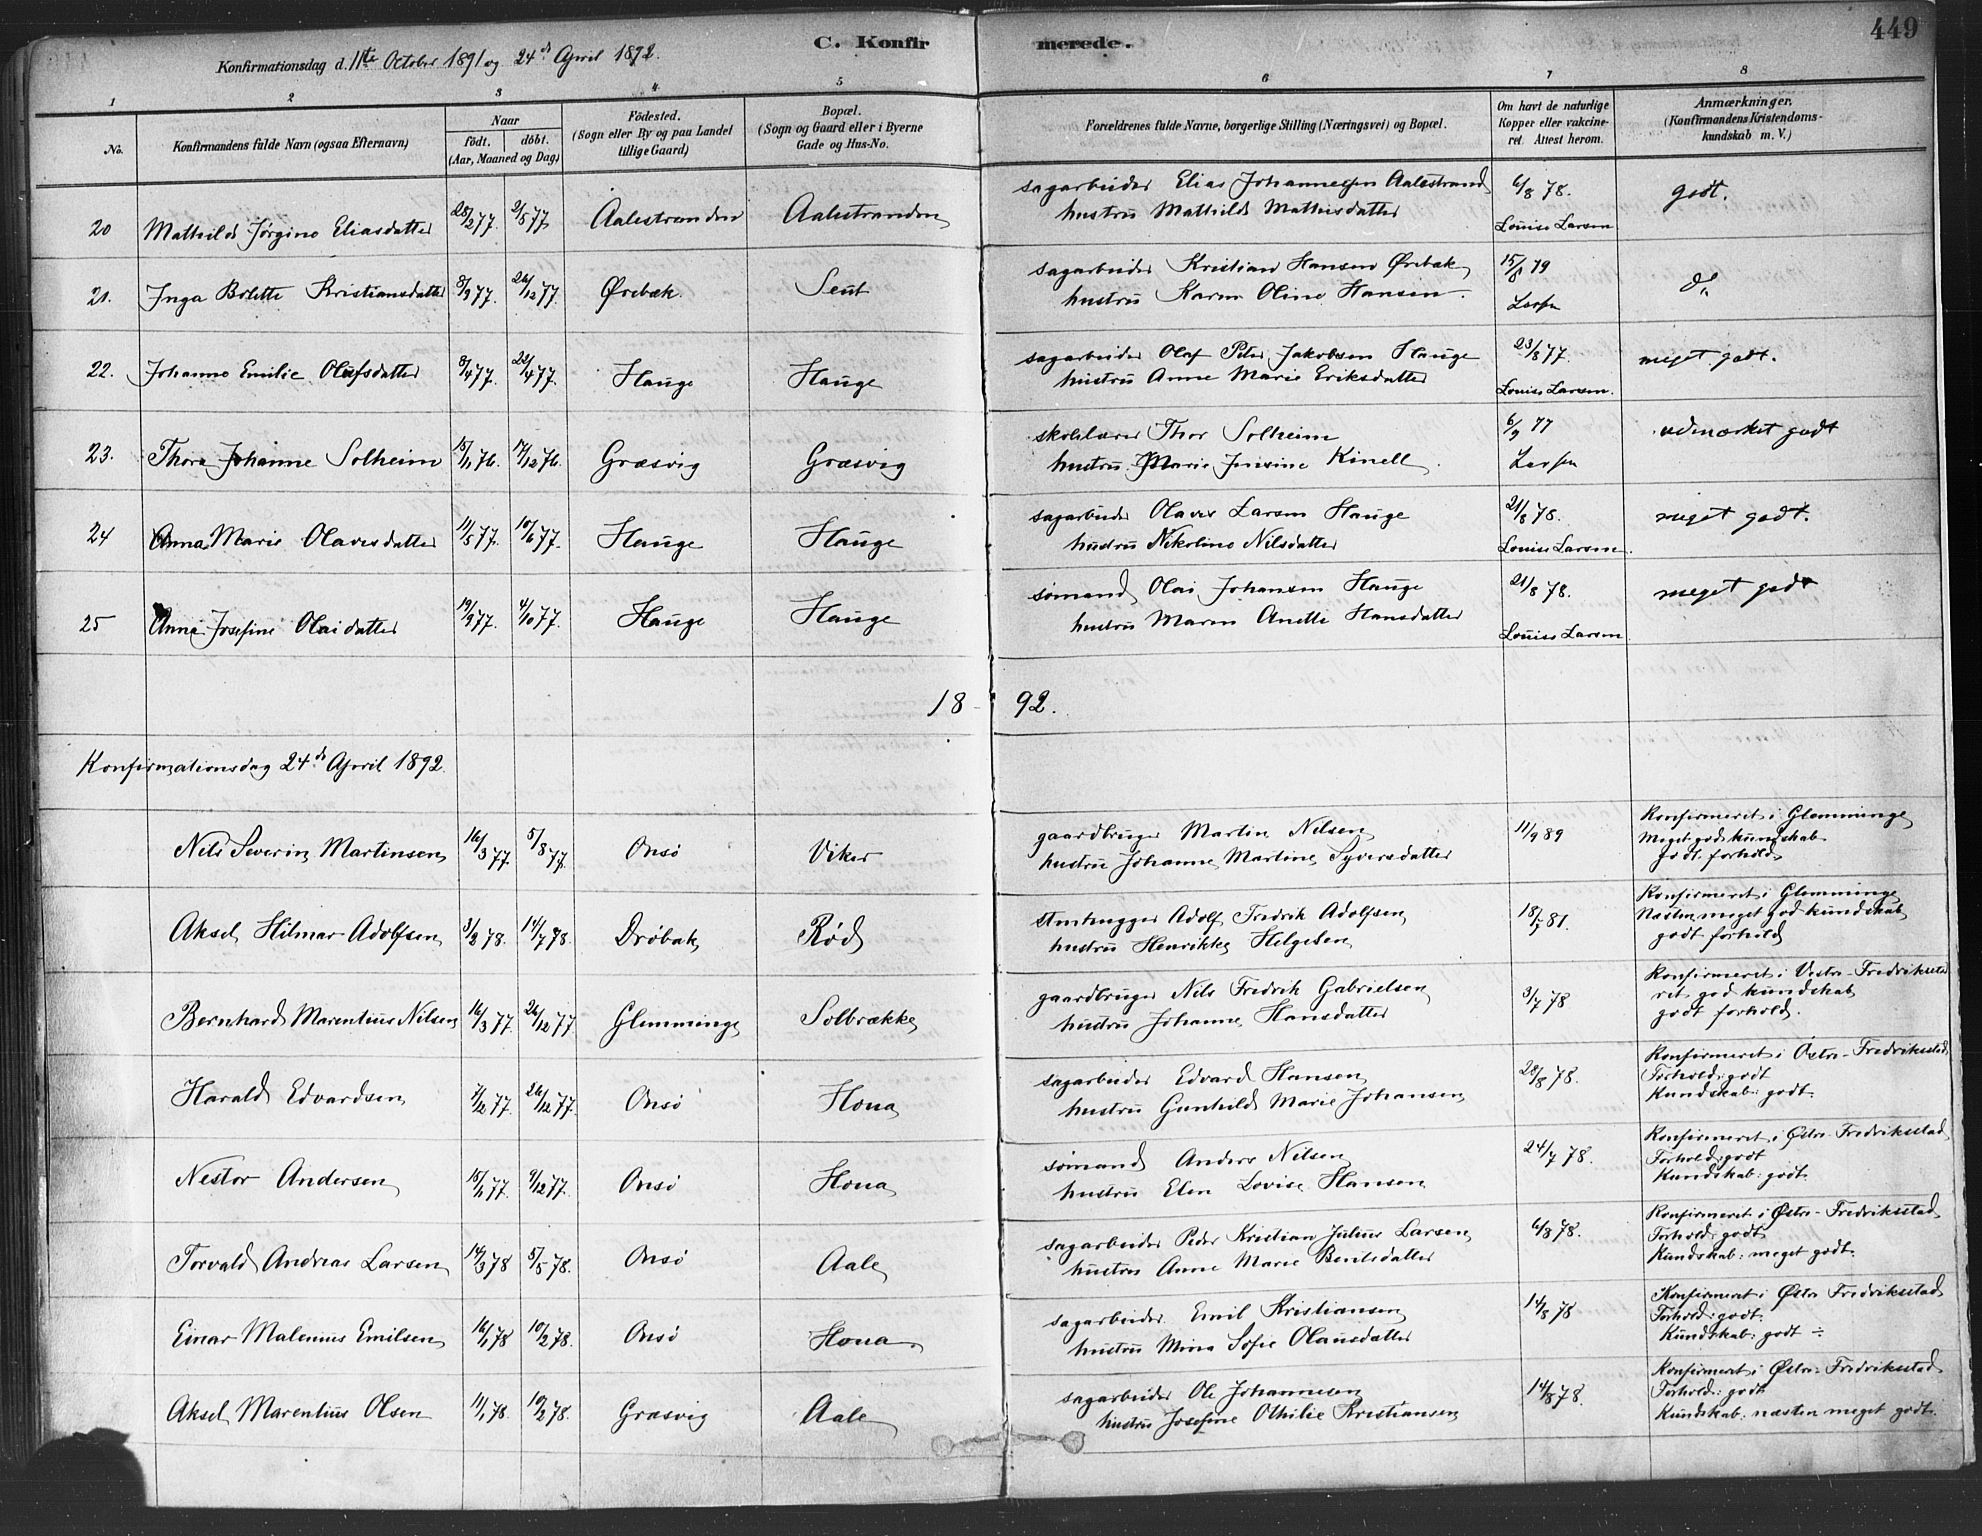 449
C. Konfirmerede.
Konfirmationsdag d. 11te October 1891 og 24de April 1892.
1 2 3 4 5 6 7 8
No.
Konfirmandens fulde Navn (ogsaa Efternavn)
Naar
født. døbt.
(Aar, Maaned og Dag)
Födested.
(Sogn eller By og paa Landet
tillige Gaard)
Bopæl.
(Sogn og Gaard eller i Byerne
Gade og Hus-No.
Forældrenes fulde Navne, borgerlige Stilling (Næringsvei) og Bopæl.
Om havt de naturlige
Kopper eller vakcine-
ret. Attest herom.
Anmærkninger.
(Konfirmandens Kristendoms-
kundskab m. V.)
20 Mathilde Jørgine Eliasdatter 28/2 77. 2/5 77 Aalestranden Aalestranden
sagarbeider Elias Johannesen Aalestrand
hustru Mathilde Mathisdatter
6/8 78.
Louise Larsen
godt.
21. Inga Bolette Kristiansdatter 8/9 77. 26/12 77. Ørebæk. Seut
sagarbeider Kristian Hansen Ørebæk
hustru Karen Oline Hansen.
15/8 79
Larsen
do
22. Johanne Emilie Olafsdatter 8/4 77. 22/4 77. Hauge Hauge
sagarbeider Olaf Peter Jakobsen Hauge
hustru Anne Marie Eriksdatter
23/8 77.
Louise Larsen.
meget godt.
23. Thora Johanne Solheim 15/11 76. 17/12 76. Græsvig Græsvig
skolelærer Thor Solheim
hustru Marie Jensine Kinell.
6/9 77
Larsen
udmærket godt
24 Anna Marie Olavesdatter 11/5 77. 10/6 77. Hauge Hauge
sagarbeider Olaves Larsen Hauge
hustru Nikoline Nilsdatter
21/8 78.
Louise Larsen.
meget godt.
25 Anna Josefine Olaidatter 19/9 77. 4/10 77. Hauge Hauge
sømand Olai Johansen Hauge
hustru Maren Anette Hansdatter
21/8 78.
Louise Larsen
meget godt
18 92.
Konfirmationsdag 24de April 1892.
Nils Severin Martinsen 16/3 77. 5/8 77. Onsö Viker
gaardbruger Martin Nilsen
hustru Johanne Martine Syversdatter
11/9 89
Konfirmeret i Glemminge
Meget god kundskab
godt forhold
Aksel Hilmar Adolfsen 3/2 78. 14/7 78. Dröbak Rød
stenhugger Adolf Fredrik Adolfsen
hustru Henrikke Helgesen
18/7 81.
Konfirmeret i Glemminge
Næsten meget god kundskab
godt forhold
Bernhard Marentius Nilsen 16/3 77. 26/12 77. Glemminge Solbrække
gaardbruger Nils Fredrik Gabrielsen
hustru Johanne Hansdatter
3/7 78
Konfirmeret i Vestre-Fredriksstad
ret god kundskab
godt forhold.
Harald Edvardsen 7/12 77. 26/12 77. Onsö Houa
sagarbeider Edvard Hansen
hustru Gunhild Marie Johansen
28/8 78.
Konfirmeret i Östre-Fredriksstad
Forhold: godt
Kundskab: godt.
Nestor Andersen 15/11 77. 9/12 77. Onsö Houa
sømand Anders Nilsen
hustru Elen Lovise Hansen
24/7 78.
Konfirmeret i Østre Fredriksstad
Forhold: godt
Kundskab: godt.
Torvald Andreas Larsen 14/3 78 5/5 78. Onsö Aale
sagarbeider Peder Kristian Julius Larsen
hustru Anne Marie Bentsdatter
6/8 78.
Konfirmeret i Østre-Fredriksstad
Forhold: godt
Kundskab: meget godt.
Einar Malenius Emilsen 16/1 78 10/2 78. Onsö Houa.
sagarbeider. Emil Kristiansen
hustru Mina Sofie Olausdatter
14/8 78
Konfirmeret i Østre Fredriksstad
Forhold: godt.
Kundskab: godt ÷
Aksel Marentius Olsen 11/1 78. 10/2 78. Græsvig Aale
sagarbeider Ole Johannesen
hustru Josefine Othilie Kristiansen
14/8 78.
Konfirmeret i Østre-Fredriksstad
Forhold: godt
Kundskab: næsten meget godt.